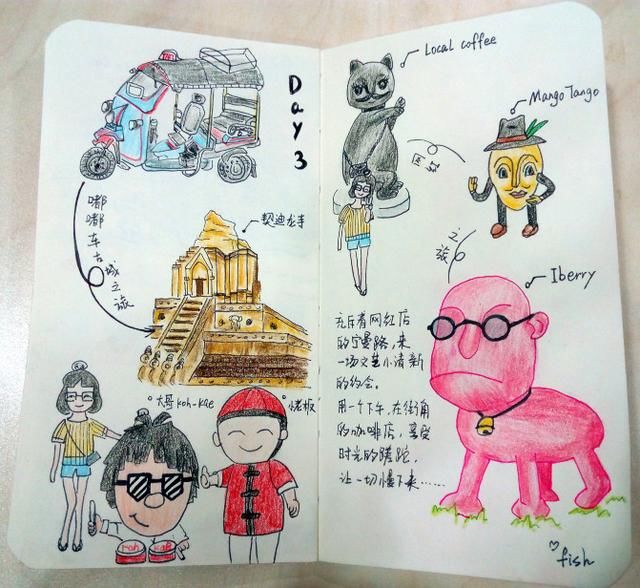 Day 3
嘟嘟车古城之旅
契迪龙寺
大哥koh-kae
佬板
koh kae
Local coffee
Mango Tango
网红
之旅
Iberry
充斥着网红店
的宁曼路,来
一场文艺小清新
的约会。
用一个下午,在街角
的咖啡店,享受
时光的蹉跎,
让一切慢下来……
fish